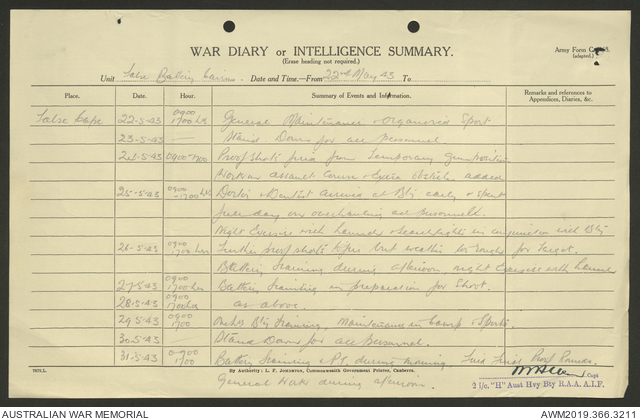 WAR DIARY or INTELLIGENCE SUMMARY.
(Erase heading not required.)
Army Form C.
(adapted.)
Unit False Battery Cairns. Date and Time.—From 22nd May 43 To
Place. Date. Hour. Summary of Events and Information. Remarks and references to Appendices, Diaries, &c.
False Cape 22-5-43 0900 1700 hrs General Maintenance & Organised Sport
23-5-43 — Stand Down for all Personnel
24-5-43 0900-1700 Proof shots fired from Temporary gun position
Work on assault course & extra obstacles added
25-5-43 0900 -1700 hrs Doctor & Dentist arrived at Bty early & spent
full day on overhauling all personnel.
Night Exercise with launch & searchlights in conjunction with Bty
26-5-43 0900 1700 hrs Further proof shots to fire but weather too rough for Target.
Battery training during afternoon, night Exercise with launch
27-5-43 0900 1700 hrs Battery training in preparation for Shoot.
28-5-43 0900 1700 hrs as above.
29-5-43 0900 1700 Bty training, Maintenance in Camp & Sports.
30-5-43 — Stand Down for all personnel.
31-5-43 0900 1700 Battery Training & P.T. during morning. Proof Rounds.
General during afternoon.
By Authority: L. F. Johnston, Commonwealth Government Printer, Canberra.
Capt
2 i/c. "H" Aust Hvy Bty R.A.A. A.I.F.
AUSTRALIAN WAR MEMORIAL
AWM2019.366.3211